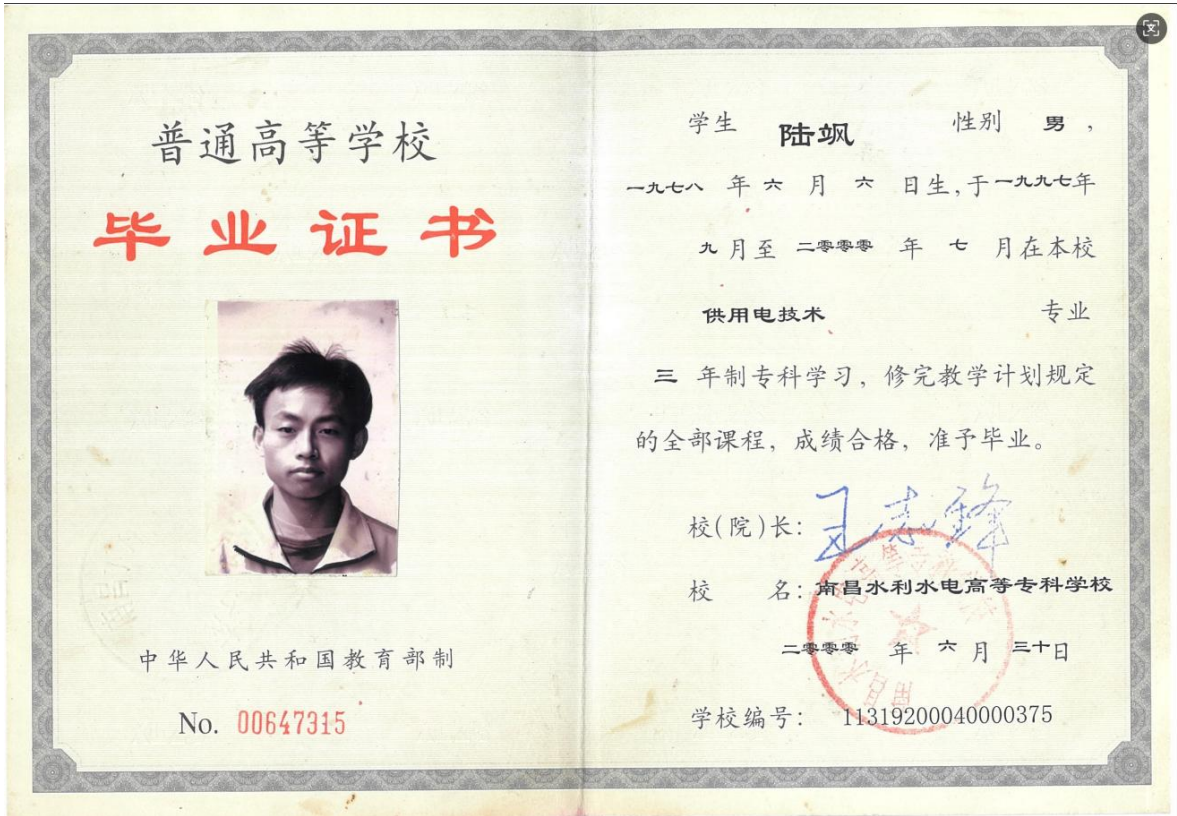 普通高等学校
毕业证书
中华人民共和国教育部制
No. 00647315
学生 陆飒 性别 男，
一九七八 年 六 月 六 日生,于一九九七年
九 月至 二零零零 年 七 月在本校
供用电技术 专业
三 年制专科学习，修完教学计划规定
的全部课程，成绩合格，准予毕业。
校(院)长:
校 名: 南昌水利水电高等专科学校
二零零零 年 六 月 三十日
学校编号: 11319200040000375